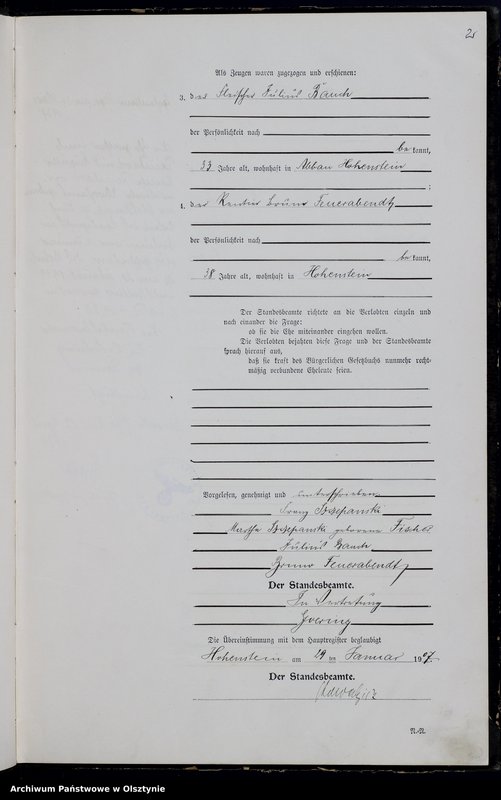 2
Als Zeugen waren zugezogen und erschienen:
3. der Fleischer Julius Bauch
der Persönlichkeit nach
be kannt,
33 Jahre alt, wohnhaft in Abbau Hohenstein
;
4. der Rentier Bruno Feuerabendt
der Persönlichkeit nach
be kannt,
38 Jahre alt, wohnhaft in Hohenstein
Der Standesbeamte richtete an die Verlobten einzeln und
nach einander die Frage:
ob sie die Ehe miteinander eingehen wollen.
Die Verlobten bejahten diese Frage und der Standesbeamte
sprach hierauf aus,
daß sie kraft des Bürgerlichen Gesetzbuchs nunmehr recht-
mäßig verbundene Eheleute seien.
Vorgelesen, genehmigt und unterschrieben
Franz Szepanski
Martha Szepanski geborene Fischer
Julius Bauch
Bruno Feuerabendt
Der Standesbeamte.
In Vertretung
Die Übereinstimmung mit dem Hauptregister beglaubigt
Hohenstein am 29 ten Januar 1907.
Der Standesbeamte.
Archiwum Państwowe w Olsztynie